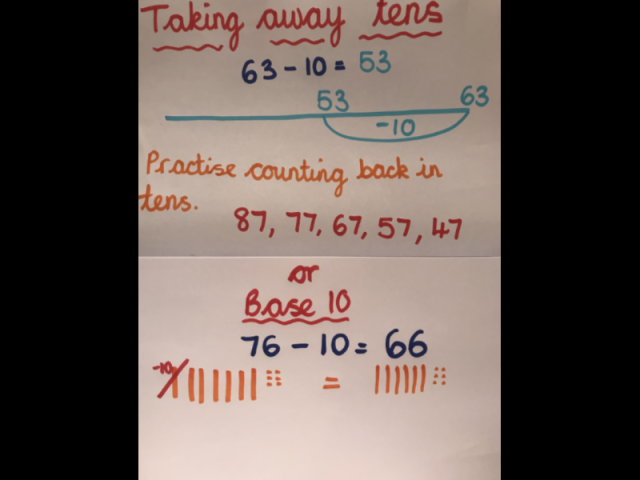 Taking away tens
63 - 10 = 53
53 63
-10
Practise counting back in
tens.
87, 77, 67, 57, 47
or
Base 10
76 - 10 = 66
-10 =